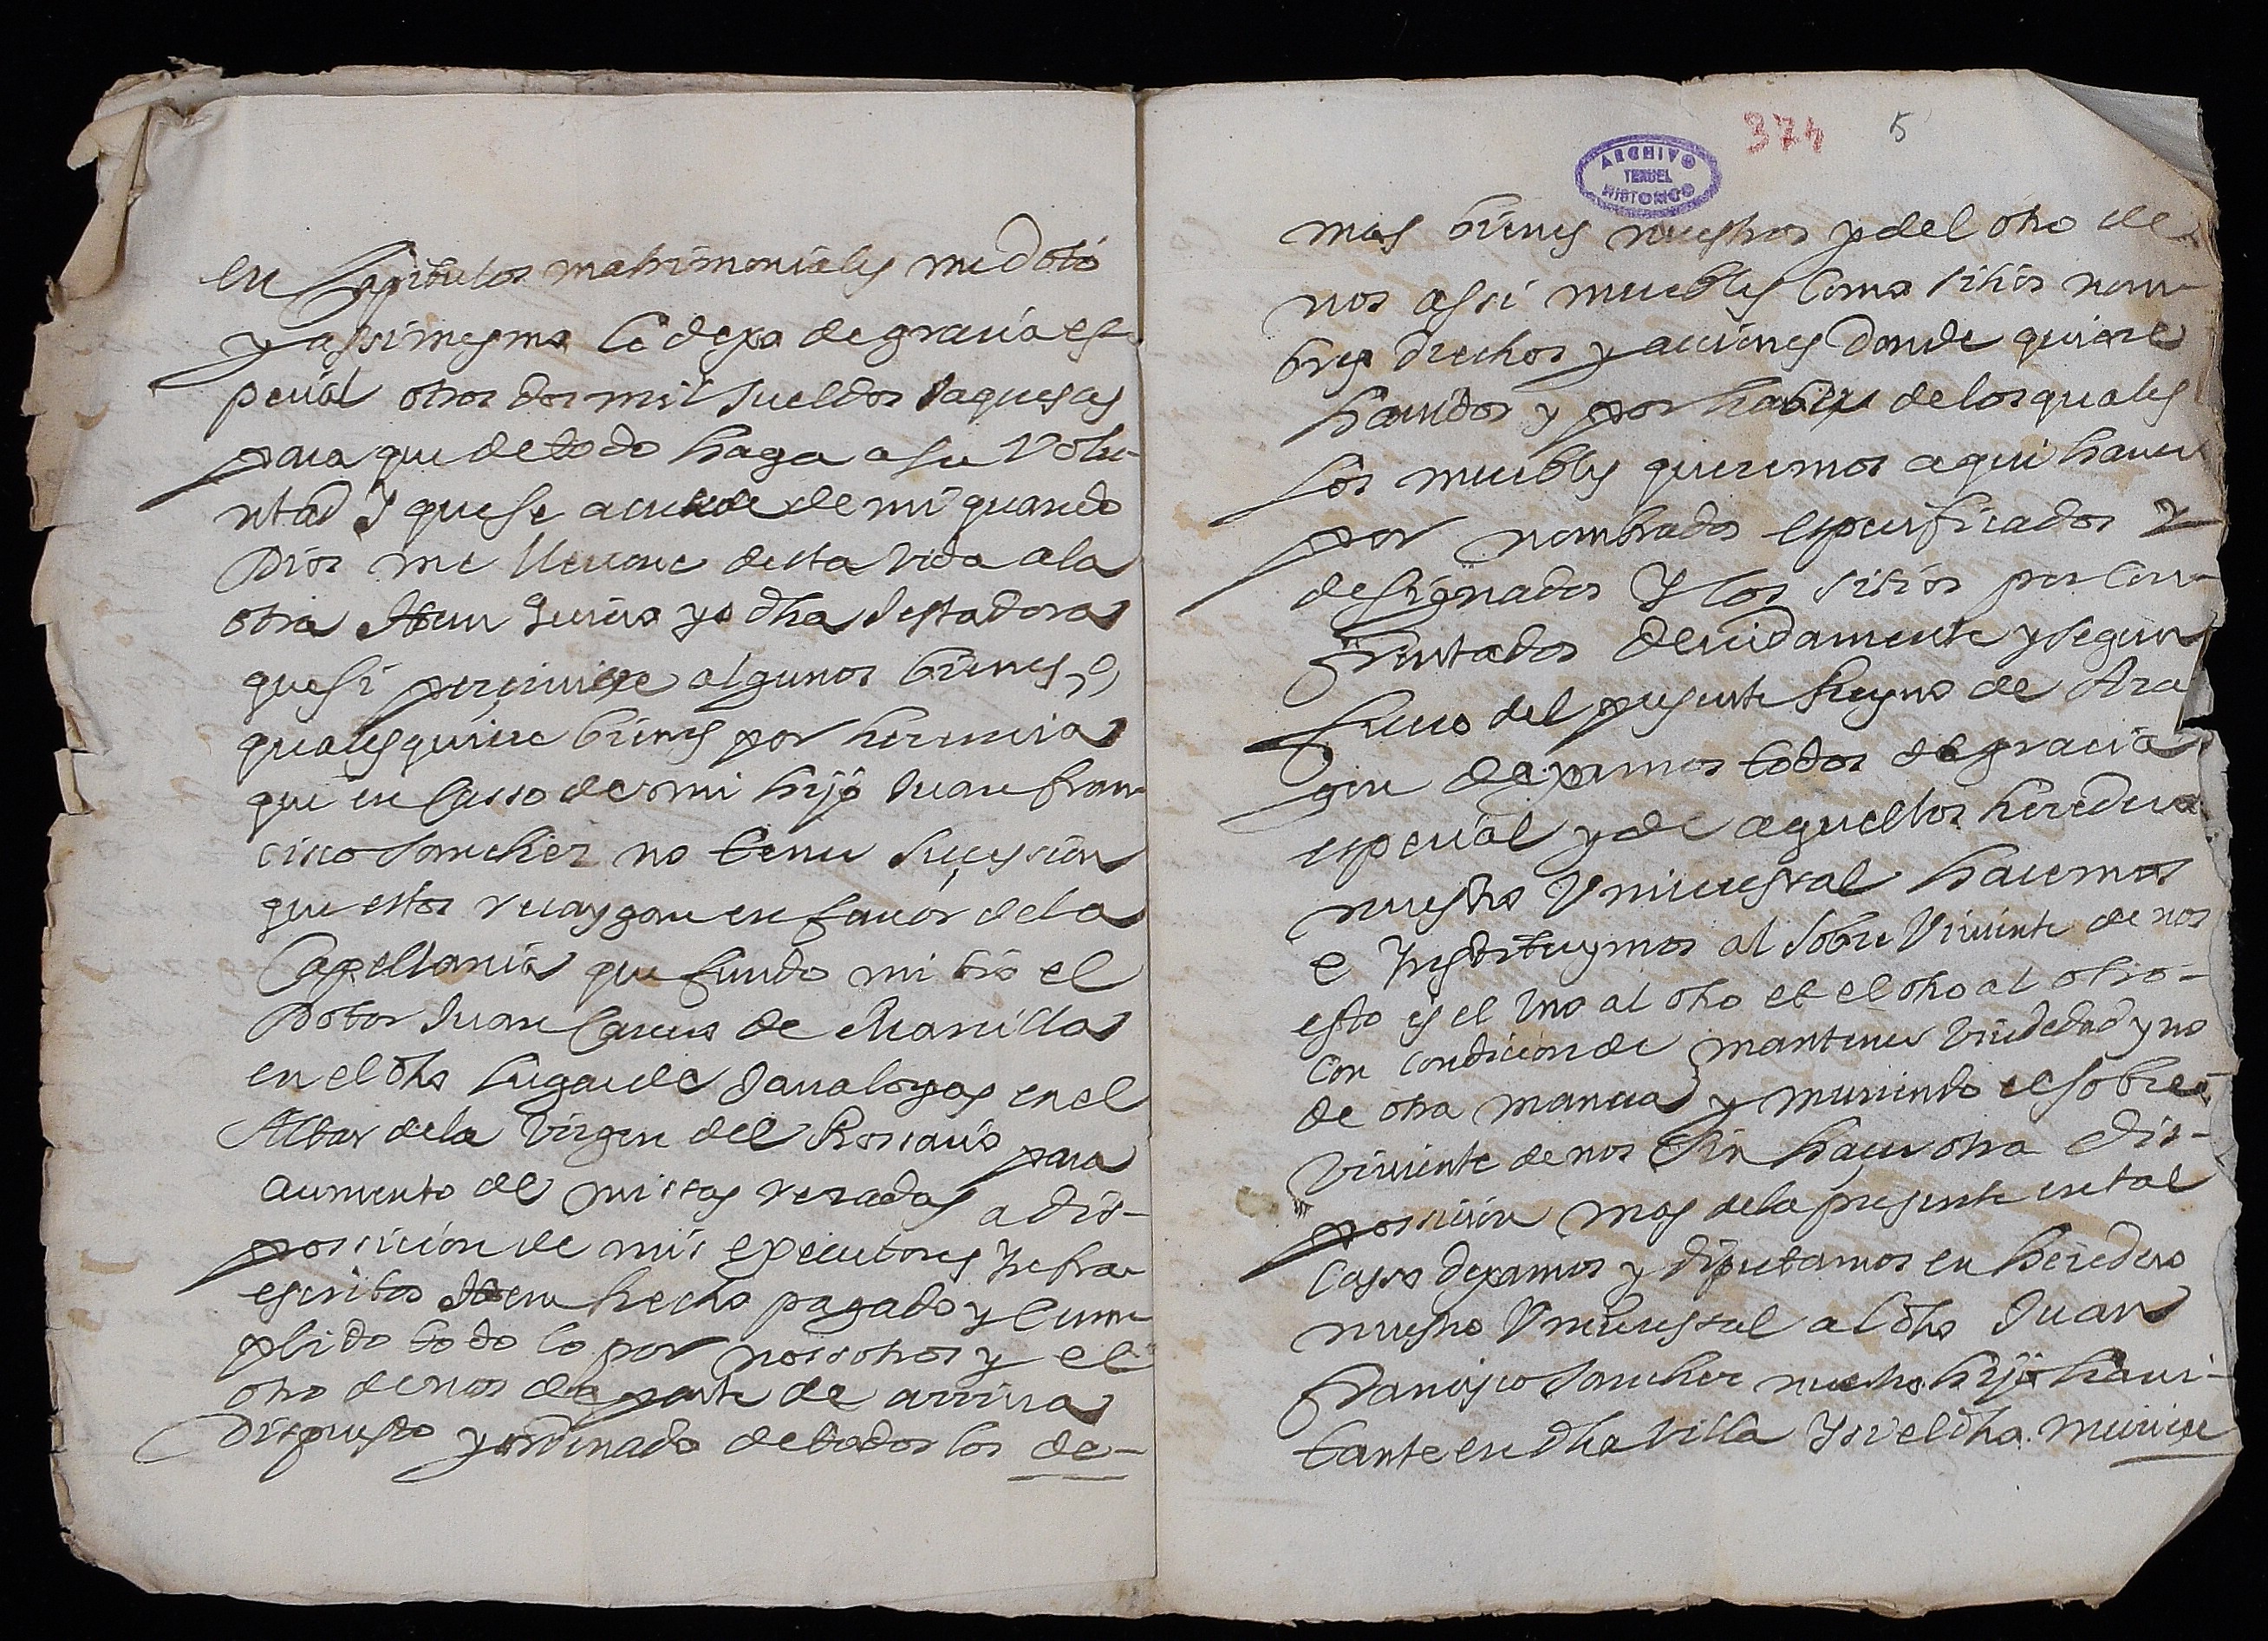 en Capitulos matrimoniales me dotó
y assimesmo le dexo de gracia es-
pecial otros dos mil sueldos Jaqueses
para que de todo haga a su Volu-
ntad Y que se acuerde de mi quando
Dios me lleuare desta Vida a la
otra Item quiero yo dha Testadora
que si perciuiere algunos bienes, o,
qualesquiere bienes por herencia
que en Casso de mi hijo Juan fran-
cisco Sanchez no tener Sucession
que estos recaygan en fauor de la
Capellania que fundo mi tio el
Dotor Juan de Mancillas
en el dho Lugar de Jaualoyas en el
Altar de la Virgen del Rossario para
aumento de missas rezadas a dis-
possicion de mis executores Infra-
escritos Item hecho pagado y Cum-
plido todo lo por nossotros y el
otro de nos de parte de arriua
Dispuesto y ordenado de todos los de-
374 5
ARCHIVO
TERUEL
HISTORICO
mas bienes nuestros y del otro de
nos assi muebles Como sitios nom-
bres drechos y acciones Donde quiere
hauidos y por hauer de los quales
los muebles queremos aqui hauer
por nombrados especificados y
designados Y los sitios por Con-
frontados deuidamente y segun
fuero del presente Reyno de Ara
gon dexamos todos de gracia
especial y de aquellos heredero
nuestro Vniuersal hacemos
e Instituymos al Sobre Viuiente de nos
esto es el Vno al otro et el otro al otro-
Con condicion de mantener Viudedad y no
de otra manera y muriendo el sobre-
viuiente de nos Sin hacer otra dis-
possicion mas de la presente en tal
Casso dexamos y diputamos en heredero
nuestro Vniuersal al dho Juan
francisco Sanchez nuestro hijo haui-
tante en dha Villa Y si el dho muriere